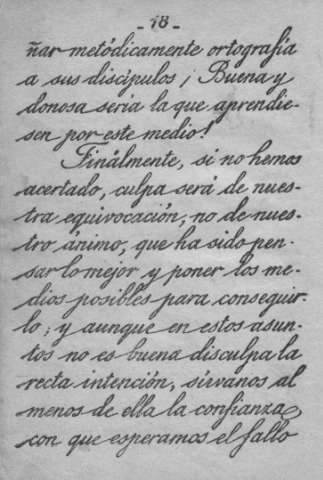 - 18 -
ñar metódicamente ortografía
a sus discípulos ¡ Buena y
donosa seria la que aprendie-
sen por este medio!
Finálmente, si no hemos
acertado, culpa será de nues-
tra equivocación; no de nues-
tro ánimo, que ha sido pen-
sar lo mejor y poner los me-
dios posibles para conseguir-
lo; y aunque en estos asun-
tos no es buena disculpa la
recta intención, sírvanos al
menos de ella la confianza
con que esperamos el fallo